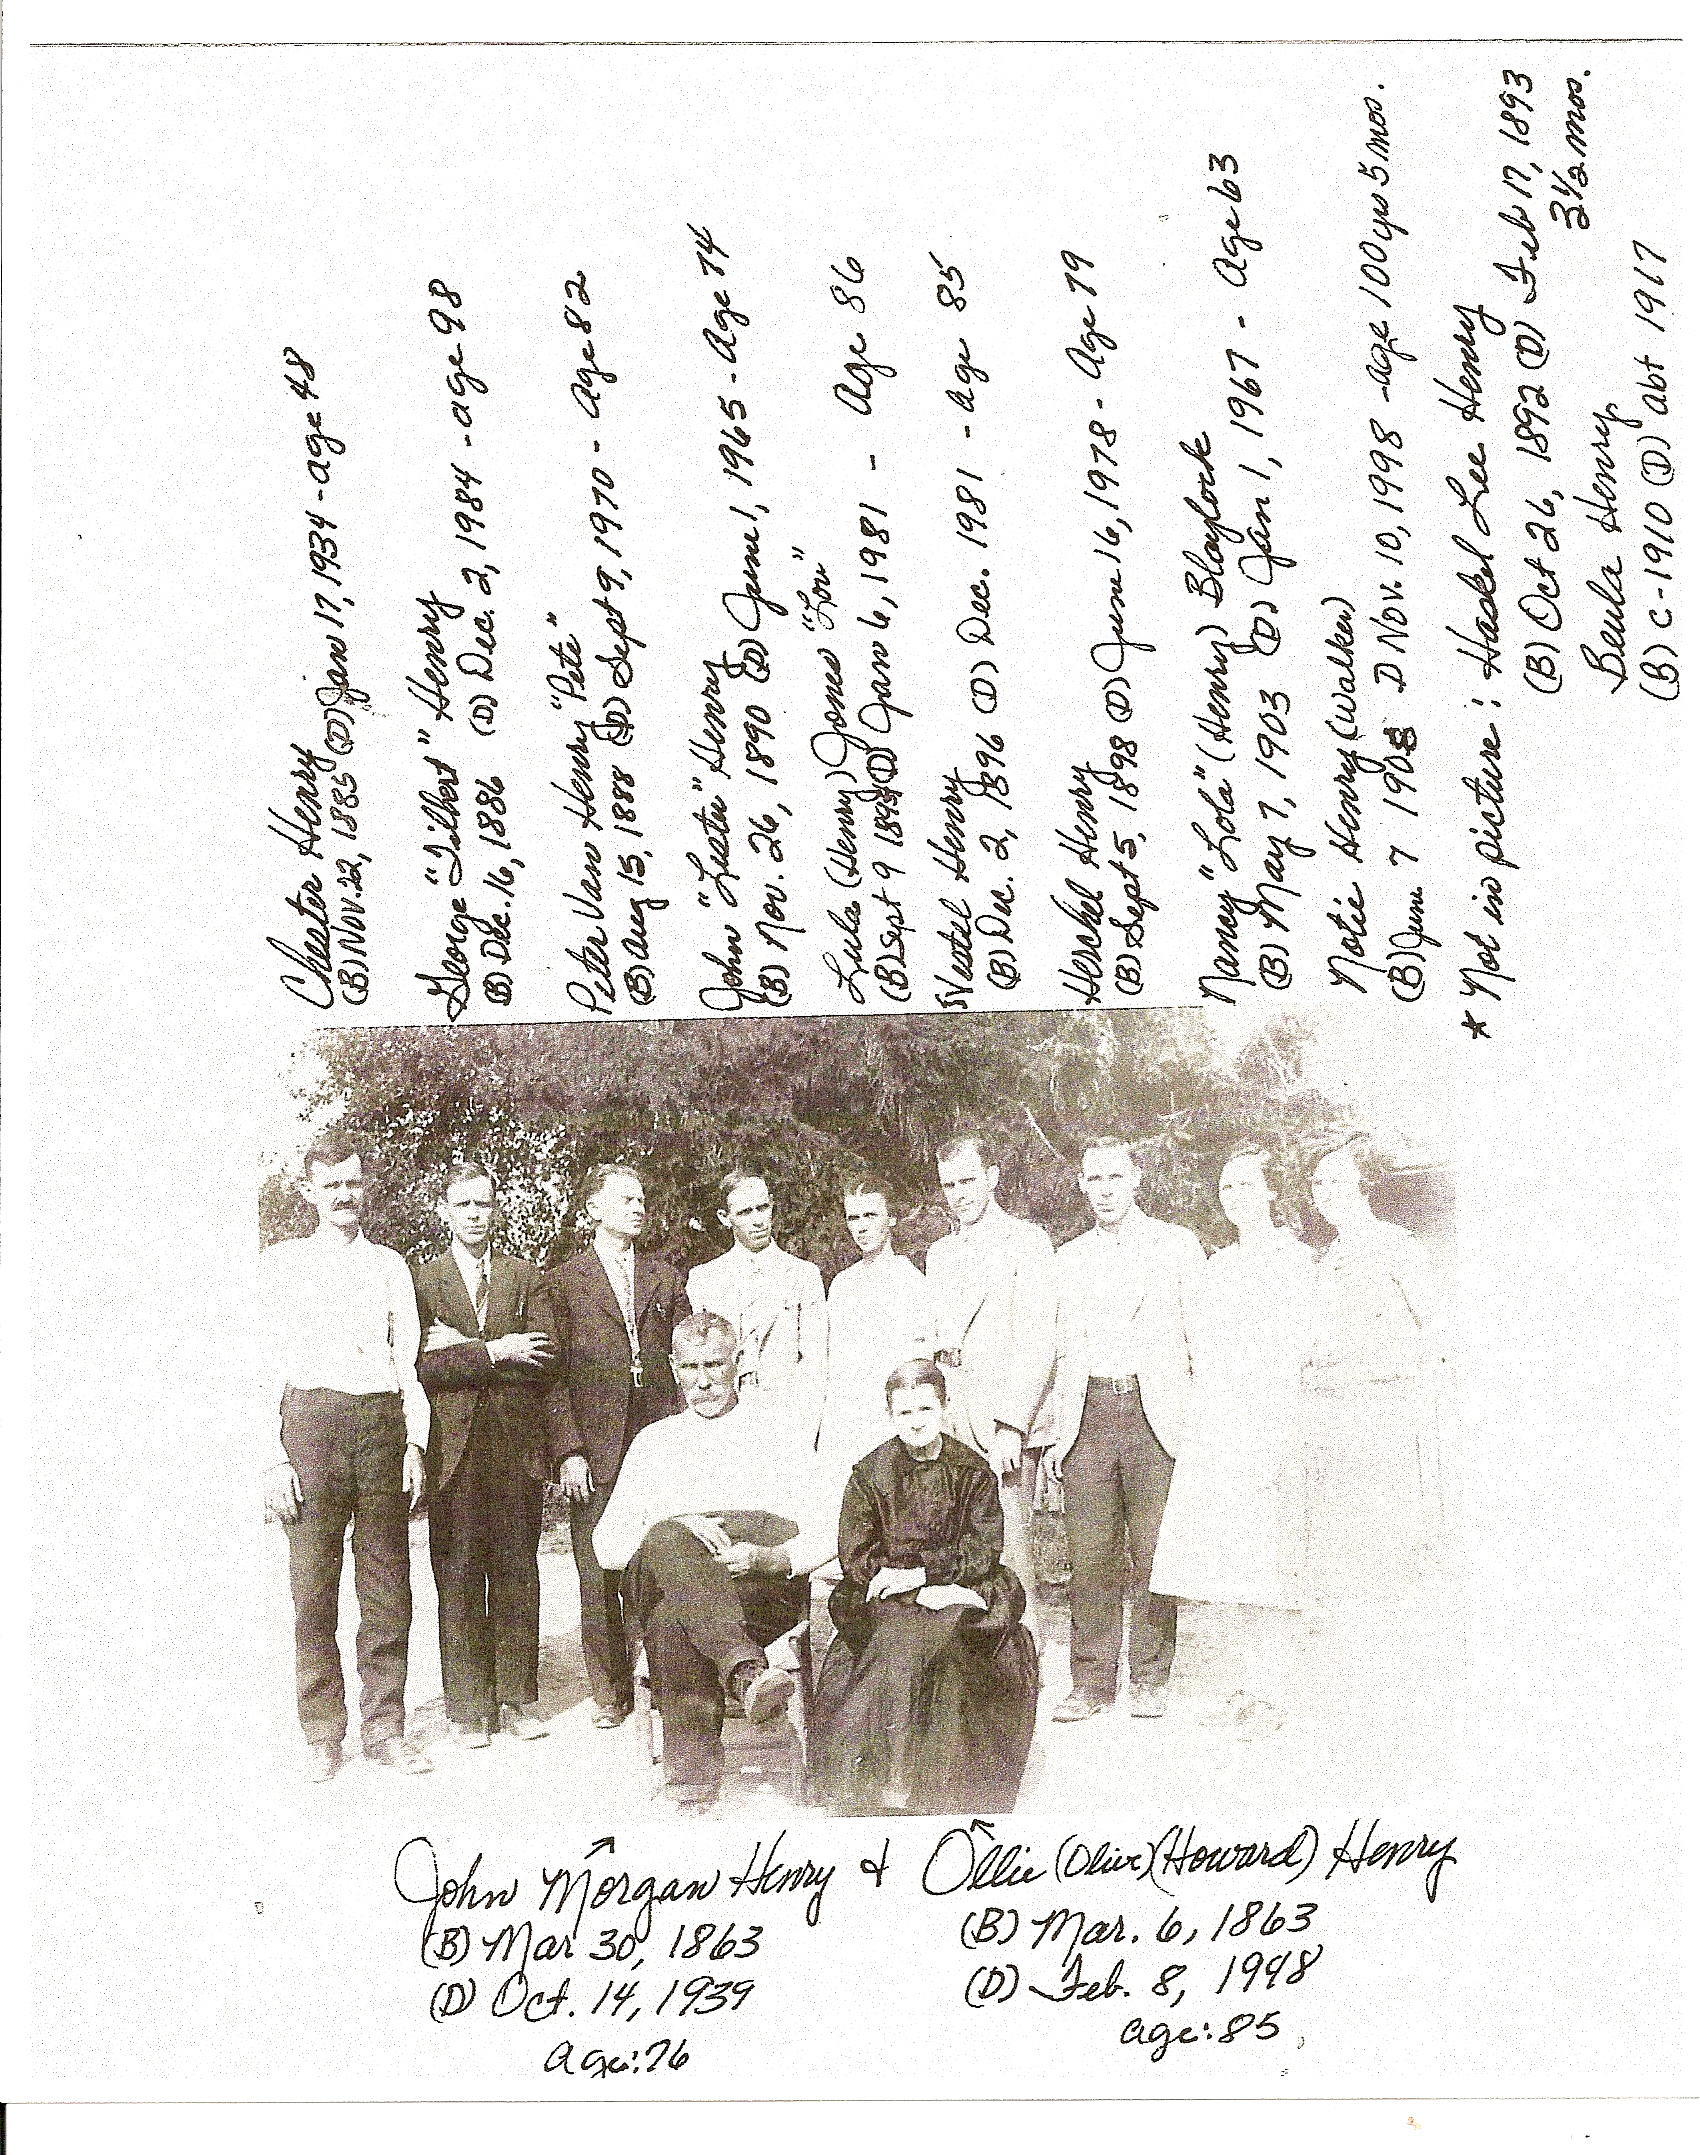 Chester Henry
(B) Nov. 22, 1885 (D) Jan 17, 1934 - age 48
George "Gilbert" Henry
(B) Dec. 16, 1886 (D) Dec. 2, 1984 - age 98
Peter Van Henry "Pete"
(B) Aug 15, 1888 (D) Sept 9, 1970 - Age 82
John "Lester" Henry
(B) Nov. 26, 1890 (D) June 1, 1965 - Age 74
Lula (Henry) Jones "Lou"
(B) Sept 9 (D) Jan 6, 1981 - Age 86
Vestel Henry
(B) Dec. 2, 1896 (D) Dec. 1981 - Age 85
Herchel Henry
(B) Sept 5, 1898 (D) June 16, 1978 - Age 79
Nancy "Lola" (Henry) Blaylock
(B) May 7, 1903 (D) Jan 1, 1967 - Age 63
Notie Henry (Walker)
(B) June 7 1908 D Nov. 10, 1998 - Age 100 yrs 5 mos.
* Not in picture: Haskel Lee Henry
(B) Oct 26, 1892 (D) Feb 17, 1893
3 1/2 mos.
Beula Henry
(B) c-1910 (D) abt 1917
John Morgan Henry & Ollie (Olive) (Howard) Henry
(B) Mar 30, 1863
(D) Oct. 14, 1939
Age: 76
(B) Mar. 6, 1863
(D) Feb. 8, 1948
age: 85